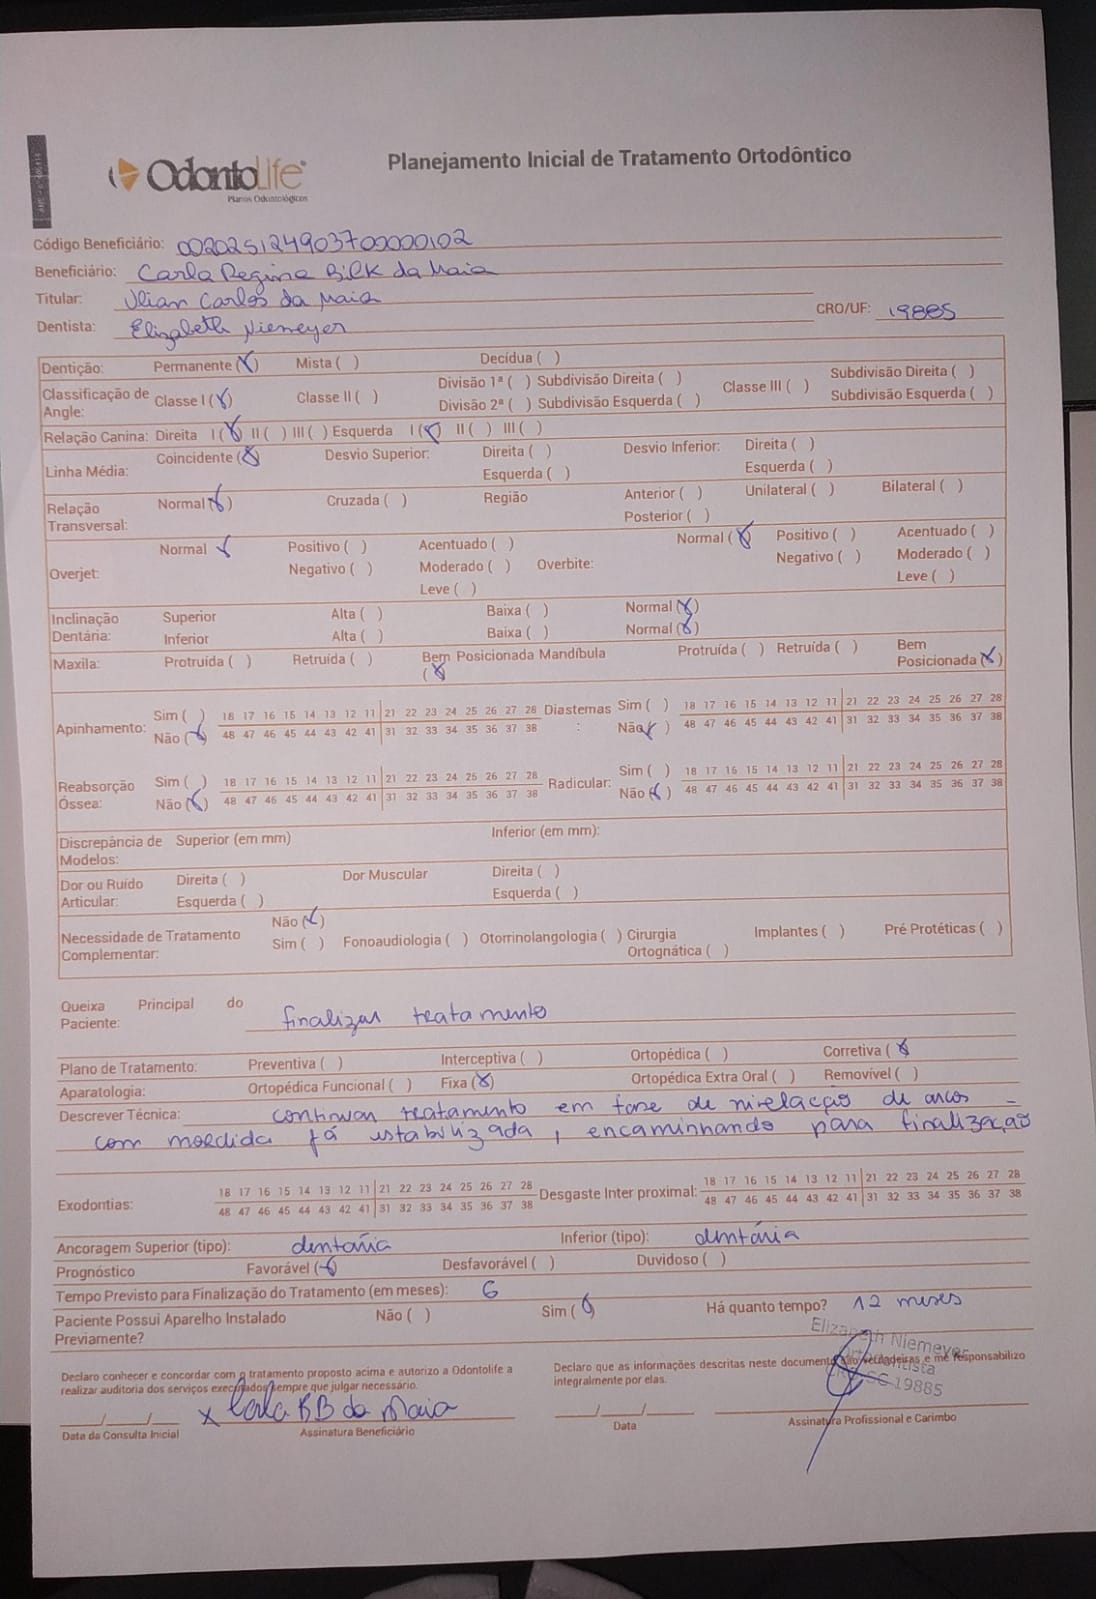 OdontoLife®
Planos Odontológicos
Planejamento Inicial de Tratamento Ortodôntico
Código Beneficiário: 00202512490370000102
Beneficiário: Carla Regina Bilk da Maia
Titular: Ilian Carlos da Maia
Dentista: Elizabeth Niemeyer CRO/UF: 19885
Dentição: Permanente (X) Mista ( ) Decídua ( )
Classificação de Angle: Classe I (X) Classe II ( ) Divisão 1ª ( ) Subdivisão Direita ( ) Classe III ( ) Subdivisão Direita ( )
Divisão 2ª ( ) Subdivisão Esquerda ( ) Subdivisão Esquerda ( )
Relação Canina: Direita I (X) II ( ) III ( ) Esquerda I (X) II ( ) III ( )
Linha Média: Coincidente (X) Desvio Superior: Direita ( ) Desvio Inferior: Direita ( )
Esquerda ( ) Esquerda ( )
Relação Transversal: Normal (X) Cruzada ( ) Região Anterior ( ) Unilateral ( ) Bilateral ( )
Posterior ( )
Overjet: Normal X Positivo ( ) Acentuado ( ) Overbite: Normal (X) Positivo ( ) Acentuado ( )
Negativo ( ) Moderado ( ) Negativo ( ) Moderado ( )
Leve ( ) Leve ( )
Inclinação Dentária: Superior Alta ( ) Baixa ( ) Normal (X)
Inferior Alta ( ) Baixa ( ) Normal (X)
Maxila: Protruída ( ) Retruída ( ) Bem Posicionada (X) Mandíbula Protruída ( ) Retruída ( ) Bem Posicionada (X)
Apinhamento: Sim ( ) 18 17 16 15 14 13 12 11 21 22 23 24 25 26 27 28 Diastemas: Sim ( ) 18 17 16 15 14 13 12 11 21 22 23 24 25 26 27 28
Não (X) 48 47 46 45 44 43 42 41 31 32 33 34 35 36 37 38 Não (X) 48 47 46 45 44 43 42 41 31 32 33 34 35 36 37 38
Reabsorção Óssea: Sim ( ) 18 17 16 15 14 13 12 11 21 22 23 24 25 26 27 28 Radicular: Sim ( ) 18 17 16 15 14 13 12 11 21 22 23 24 25 26 27 28
Não (X) 48 47 46 45 44 43 42 41 31 32 33 34 35 36 37 38 Não (X) 48 47 46 45 44 43 42 41 31 32 33 34 35 36 37 38
Discrepância de Modelos: Superior (em mm) Inferior (em mm):
Dor ou Ruído Articular: Direita ( ) Dor Muscular Direita ( )
Esquerda ( ) Esquerda ( )
Necessidade de Tratamento Complementar: Não (X)
Sim ( ) Fonoaudiologia ( ) Otorrinolangologia ( ) Cirurgia Ortognática ( ) Implantes ( ) Pré Protéticas ( )
Queixa Principal do Paciente: finalizar tratamento
Plano de Tratamento: Preventiva ( ) Interceptiva ( ) Ortopédica ( ) Corretiva (X)
Aparatologia: Ortopédica Funcional ( ) Fixa (X) Ortopédica Extra Oral ( ) Removível ( )
Descrever Técnica: continuar tratamento em fase de nivelação de arcos -
com mordida já estabilizada, encaminhando para finalização
Exodontias: 18 17 16 15 14 13 12 11 21 22 23 24 25 26 27 28 Desgaste Inter proximal: 18 17 16 15 14 13 12 11 21 22 23 24 25 26 27 28
48 47 46 45 44 43 42 41 31 32 33 34 35 36 37 38 48 47 46 45 44 43 42 41 31 32 33 34 35 36 37 38
Ancoragem Superior (tipo): dentária Inferior (tipo): dentária
Prognóstico Favorável (X) Desfavorável ( ) Duvidoso ( )
Tempo Previsto para Finalização do Tratamento (em meses): 6
Paciente Possui Aparelho Instalado Previamente? Não ( ) Sim (X) Há quanto tempo? 12 meses
Elizabeth Niemeyer
CRO/SC 19885
Declaro conhecer e concordar com o tratamento proposto acima e autorizo a Odontolife a
realizar auditoria dos serviços executados sempre que julgar necessário.
Declaro que as informações descritas neste documento são verdadeiras e me responsabilizo
integralmente por elas.
X Carla RB da Maia
__/__/__ Data da Consulta Inicial Assinatura Beneficiário
__/__/__ Data Assinatura Profissional e Carimbo